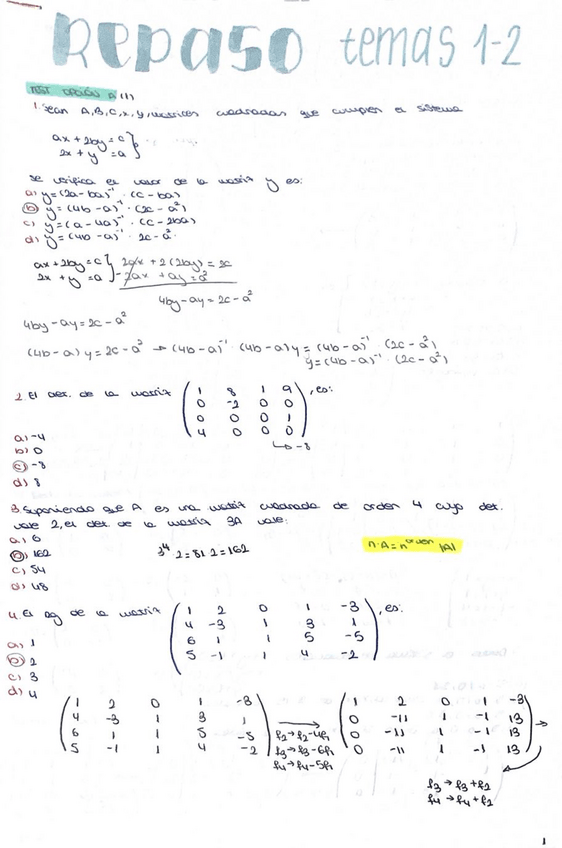 Repaso temas 1-2
TEST OPCIÓN a (1)
1. Sean A, B, C, x, y, matrices cuadradas que cumplen el sistema
ax + 2by = c
2x + y = a }
se verifica el valor de la matriz y es:
a) y = (2a - ba)⁻¹ · (c - ba)
b) y = (4b - a)⁻¹ · (2c - a²)
c) y = (a - 4a)⁻¹ · (c - 2ba)
d) y = (4b - a)⁻¹ · 2c - a².
ax + 2by = c } 2ax + 2(2by) = 2c
2x + y = a } - 2ax + ay = a²
4by - ay = 2c - a²
4by - ay = 2c - a²
(4b - a) y = 2c - a² → (4b - a)⁻¹ · (4b - a) y = (4b - a)⁻¹ · (2c - a²)
y = (4b - a)⁻¹ · (2c - a²)
2. El det. de la matriz ( 1 8 1 9 ), es:
0 -2 0 0
0 0 0 1
4 0 0 0
↳ -8
a) -4
b) 0
c) -8
d) 8
3. Suponiendo que A es una matriz cuadrada de orden 4 cuyo det.
vale 2, el det. de la matriz 3A vale:
a) 6
b) 162 3⁴ · 2 = 81 · 2 = 162 n·A = n^orden |A|
c) 54
d) 48
4. El rg de la matriz ( 1 2 0 1 -3 ), es:
4 -3 1 3 1
6 1 1 5 -5
5 -1 1 4 -2
a) 1
b) 2
c) 3
d) 4
1 2 0 1 -3 1 2 0 1 -3
4 -3 1 3 1 → 0 -11 1 -1 13
6 1 1 5 -5 f2 → f2 - 4f1 0 -11 1 -1 13 →
5 -1 1 4 -2 f3 → f3 - 6f1 0 -11 1 -1 13
f4 → f4 - 5f1
f3 → f3 + f2
f4 → f4 + f2
1